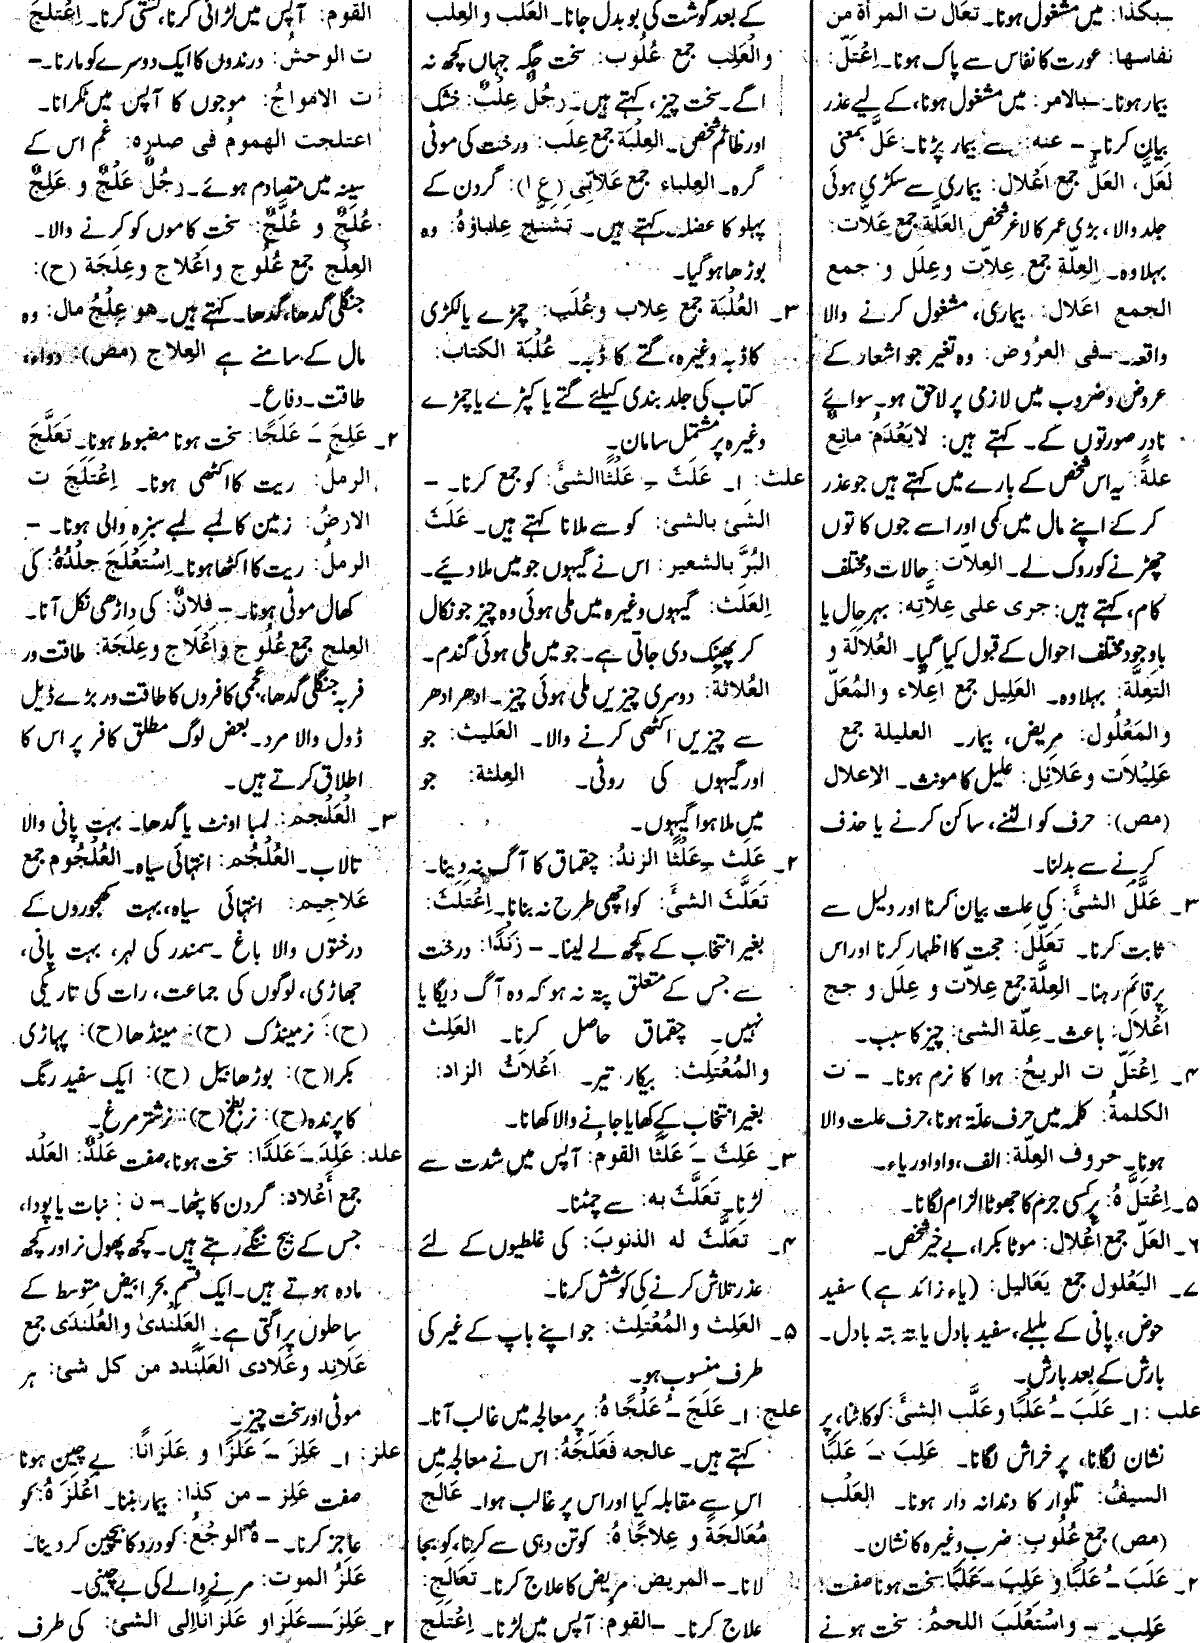 بکذا: میں مشغول ہونا۔ تعالّت المرأة من
نفاسها: عورت کا نفاس سے پاک ہونا۔ اِعْتَلَّ:
بیمار ہونا۔ – بالامر: میں مشغول ہونا، کے لیے عذر
بیان کرنا۔ – عنه: سے بیمار پڑنا۔ عَلَّ بمعنی
لَعَلَّ، العَلُّ جمع اَعْلال: بیماری سے سکڑی ہوئی
جلد والا، بڑی عمر کا لاغر شخص العَلَّة جمع عَلَّات:
بہلاوہ۔ العِلّة جمع عِلاّت وعِلَل و جمع
الجمع اعلال: بیماری، مشغول کرنے والا
واقعہ۔ – فی العرُوض: وہ تغیر جو اشعار کے
عروض وضروب میں لازمی پر لاحق ہو۔ سوائے
نادر صورتوں کے۔ کہتے ہیں: لایَعْدَمُ مانِعٌ
علةً: یہ اس شخص کے بارے میں کہتے ہیں جو عذر
کر کے اپنے مال میں کمی اور اسے جوں کا توں
چھڑنے کو روک لے۔ العِلاّت: حالات ومختلف
کام، کہتے ہیں: جری علی عِلاّتِه: بہر حال یا
باوجود مختلف احوال کے قبول کیا گیا۔ العُلالَة و
التَعِلَّة: بہلاوہ۔ العَلِیل جمع اَعِلاّء والمُعَلّ
والمَعْلُول: مریض، بیمار۔ العلیلة جمع
عَلِیْلات وعَلائِل: علیل کا مونث۔ الاعلال
(مص): حرف کو الٹنے، ساکن کرنے یا حذف
کرنے سے بدلنا۔
۳۔ عَلَّلَ الشیَٔ: کی علت بیان کرنا اور دلیل سے
ثابت کرنا۔ تَعَلَّلَ: حجت کا اظہار کرنا اور اس
پر قائم رہنا۔ العِلّة جمع عِلاّت و عِلَل و جج
اَعْلال: باعث۔ عِلّة الشیٔ: چیز کا سبب۔
۴۔ اِعْتَلَّ ت الریحُ: ہوا کا نرم ہونا۔ – ت
الکلمةُ: کلمہ میں حرف علّة ہونا، حرف علت والا
ہونا۔ حروف العِلّة: الف، واو اور یاء۔
۵۔ اِعْتَلَّ هُ: پر کسی جرم کا جھوٹا الزام لگانا۔
۶۔ العَلّ جمع اَعْلال: موٹا بکرا، بے خیر شخص۔
۷۔ الیَعْلول جمع یَعَالیل: (یاء زائد ہے) سفید
حوض، پانی کے بلبلے، سفید بادل یا تہ بتہ بادل۔
بارش کے بعد بارش۔
علب: ۱۔ عَلَبَ –ُ عَلْبًا و عَلَّب الشیَٔ: کو کاٹنا، پر
نشان لگانا، پر خراش لگانا۔ عَلِبَ –َ عَلَبًا
السیفُ: تلوار کا دندانہ دار ہونا۔ العَلْب
(مص) جمع عُلُوب: ضرب وغیرہ کا نشان۔
۲۔ عَلَبَ –ُ عَلْبًا و عَلِبَ –َ عَلَبًا سخت ہونا صفت:
عَلِب۔ – و اسْتَعْلَبَ اللحمُ: سخت ہونے
کے بعد گوشت کی بو بدل جانا۔ العَلْب والعِلْب
والعَلِب جمع عُلُوب: سخت جگہ جہاں کچھ نہ
اگے۔ سخت چیز، کہتے ہیں۔ رَجُلٌ عِلْبٌ: خشک
اور ظالم شخص۔ العِلْبَة جمع عِلَب: درخت کی موٹی
گرہ۔ العِلباء جمع عَلابِّی (ع ا): گردن کے
پہلو کا عضلہ۔ کہتے ہیں۔ تشنّج عِلباؤهُ: وہ
بوڑھا ہو گیا۔
۳۔ العُلْبَة جمع عِلاب وعُلَب: چمڑے یا لکڑی
کا ڈبہ وغیرہ، گتے کا ڈبہ۔ عُلْبَة الکتاب:
کتاب کی جلد بندی کیلئے گتے یا کپڑے یا چمڑے
وغیرہ پر مشتمل سامان۔
علث: ۱۔ عَلَثَ –ِ عَلْثًا الشیَٔ: کو جمع کرنا۔ –
الشیٔ بالشیٔ: کو سے ملانا کہتے ہیں۔ عَلَثَ
البُرَّ بالشعیر: اس نے گیہوں جو میں ملا دیئے۔
العَلَث: گیہوں وغیرہ میں ملی ہوئی وہ چیز جو نکال
کر پھینک دی جاتی ہے۔ جو میں ملی ہوئی گندم۔
العُلاثة: دوسری چیزیں ملی ہوئی چیز۔ ادھر ادھر
سے چیزیں اکٹھی کرنے والا۔ العَلیث: جو
اور گیہوں کی روٹی۔ العِلثة: جو
میں ملا ہوا گیہوں۔
۲۔ عَلَثَ –ِ عَلْثًا الزندُ: چقماق کا آگ نہ دینا۔
تَعَلَّثَ الشیَٔ: کو اچھی طرح نہ بنانا۔ اِعْتَلَثَ:
بغیر انتخاب کے کچھ لے لینا۔ – زَنْدًا: درخت
سے جس کے متعلق پتہ نہ ہو کہ وہ آگ دیگا یا
نہیں۔ چقماق حاصل کرنا۔ العَلِث
والمُعْتَلِث: بیکار تیر۔ اَعْلاثُ الزاد:
بغیر انتخاب کے کھایا جانے والا کھانا۔
۳۔ عَلِثَ –َ عَلَثًا القومُ: آپس میں شدت سے
لڑنا۔ تَعَلَّثَ به: سے چمٹنا۔
۴۔ تَعَلَّثَ له الذنوبَ: کی غلطیوں کے لئے
عذر تلاش کرنے کی کوشش کرنا۔
۵۔ العَلِث والمُعْتَلِث: جو اپنے باپ کے غیر کی
طرف منسوب ہو۔
علج: ۱۔ عَلَجَ –ُ عَلْجًا هُ: پر معالجہ میں غالب آنا۔
کہتے ہیں۔ عالجه فَعَلَجَهُ: اس نے معالجہ میں
اس سے مقابلہ کیا اور اس پر غالب ہوا۔ عَالَجَ
مُعَالَجَةً و عِلاجًا هُ: کو تن دہی سے کرنا، کو بجا
لانا۔ – المریض: مریض کا علاج کرنا۔ تَعَالَج:
علاج کرنا۔ – القومُ: آپس میں لڑنا۔ اِعْتَلَجَ
القوم: آپس میں لڑائی کرنا، کشتی کرنا۔ اِعْتَلَجَ
ت الوحشُ: درندوں کا ایک دوسرے کو مارنا۔ –
ت الامواجُ: موجوں کا آپس میں ٹکرانا۔
اعتلجت الهمومُ فی صدره: غم اس کے
سینہ میں متصادم ہوئے۔ رجُلٌ عَلْجٌ و عَلِجٌ
عُلَجٌ و عُلَّجٌ: سخت کاموں کو کرنے والا۔
العِلْج جمع عُلُوج واَعْلاج وعِلَجَة (ح):
جنگلی گدھا، گدھا۔ کہتے ہیں۔ هو عِلْجُ مال: وہ
مال کے سامنے ہے العِلاج (مص): دواء،
طاقت۔ دفاع۔
۲۔ عَلِجَ –َ عَلَجًا: سخت ہونا مضبوط ہونا۔ تَعَلَّجَ
الرملُ: ریت کا اکٹھی ہونا۔ اِعْتَلَجَ ت
الارضُ: زمین کا لمبے لمبے سبزہ والی ہونا۔ –
الرملُ: ریت کا اکٹھا ہونا۔ اِسْتَعْلَجَ جِلْدُهُ: کی
کھال موٹی ہونا۔ – فلانٌ: کی داڑھی نکل آنا۔
العِلج جمع عُلُوج واَعْلاج وعِلَجَة: طاقت ور
فربہ جنگلی گدھا، عجمی کافروں کا طاقت ور بڑے ڈیل
ڈول والا مرد۔ بعض لوگ مطلق کافر پر اس کا
اطلاق کرتے ہیں۔
۳۔ العَلْجم: لمبا اونٹ یا گدھا۔ بہت پانی والا
تالاب۔ العُلْجُم: انتہائی سیاہ۔ العُلْجُوم جمع
عَلاجِیم: انتہائی سیاہ، بہت کھجوروں کے
درختوں والا باغ۔ سمندر کی لہر، بہت پانی،
جھاڑی، لوگوں کی جماعت، رات کی تاریکی
(ح): نر مینڈک (ح): مینڈھا (ح): پہاڑی
بکرا (ح): بوڑھا بیل (ح): ایک سفید رنگ
کا پرندہ (ح): نر بطخ (ح): نر شتر مرغ۔
علد: عَلِدَ –َ عَلَدًا: سخت ہونا، صفت عَلْدٌ: العَلْد
جمع أَعْلاد: گردن کا پٹھا۔ – ن: نبات یا پودا،
جس کے بیج ننگے رہتے ہیں۔ کچھ پھول نر اور کچھ
مادہ ہوتے ہیں۔ ایک قسم بحر ابیض متوسط کے
ساحلوں پر اگتی ہے۔ العَلَنْدیٰ والعُلَنْدَی جمع
عَلانِد وعَلادی العَلَنْدد من کل شیٔ: ہر
موٹی اور سخت چیز۔
علز: ۱۔ عَلِزَ –َ عَلَزًا و عَلَزَانًا: بے چین ہونا
صفت عَلِز – من کذا: بیمار بننا۔ اَعْلَزَ هُ: کو
عاجز کرنا۔ – هُ الوجْعُ: کو درد کا بیچین کر دینا۔
عَلَزُ الموت: مرنے والے کی بے چینی۔
۲۔ عَلِزَ –َ عَلَزًا و عَلَزانًا إلی الشیٔ: کی طرف